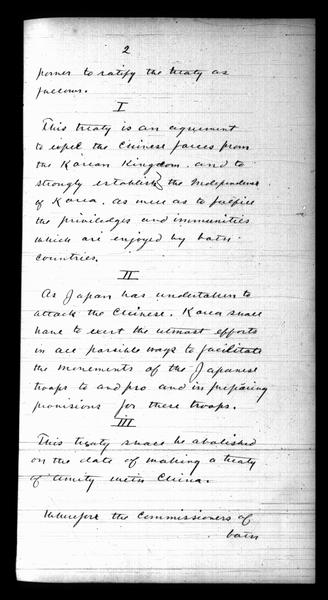 2
power to ratify the treaty as
follows.
I
This treaty is an agreement
to expel the Chinese forces from
the Korean Kingdom. and to
strongly establish the Independence
of Korea. as well as to fulfill
the priviledges and immunities
which are enjoyed by both
countries.
II
As Japan has undertaken to
attack the Chinese. Korea shall
have to exert the utmost efforts
in all possible ways to facilitate
the movements of the Japanese
troops to and fro and in preparing
provisions for these troops.
III
This treaty shall be abolished
on the date of making a treaty
of amity with China.
Wherefore the Commissioners of
both